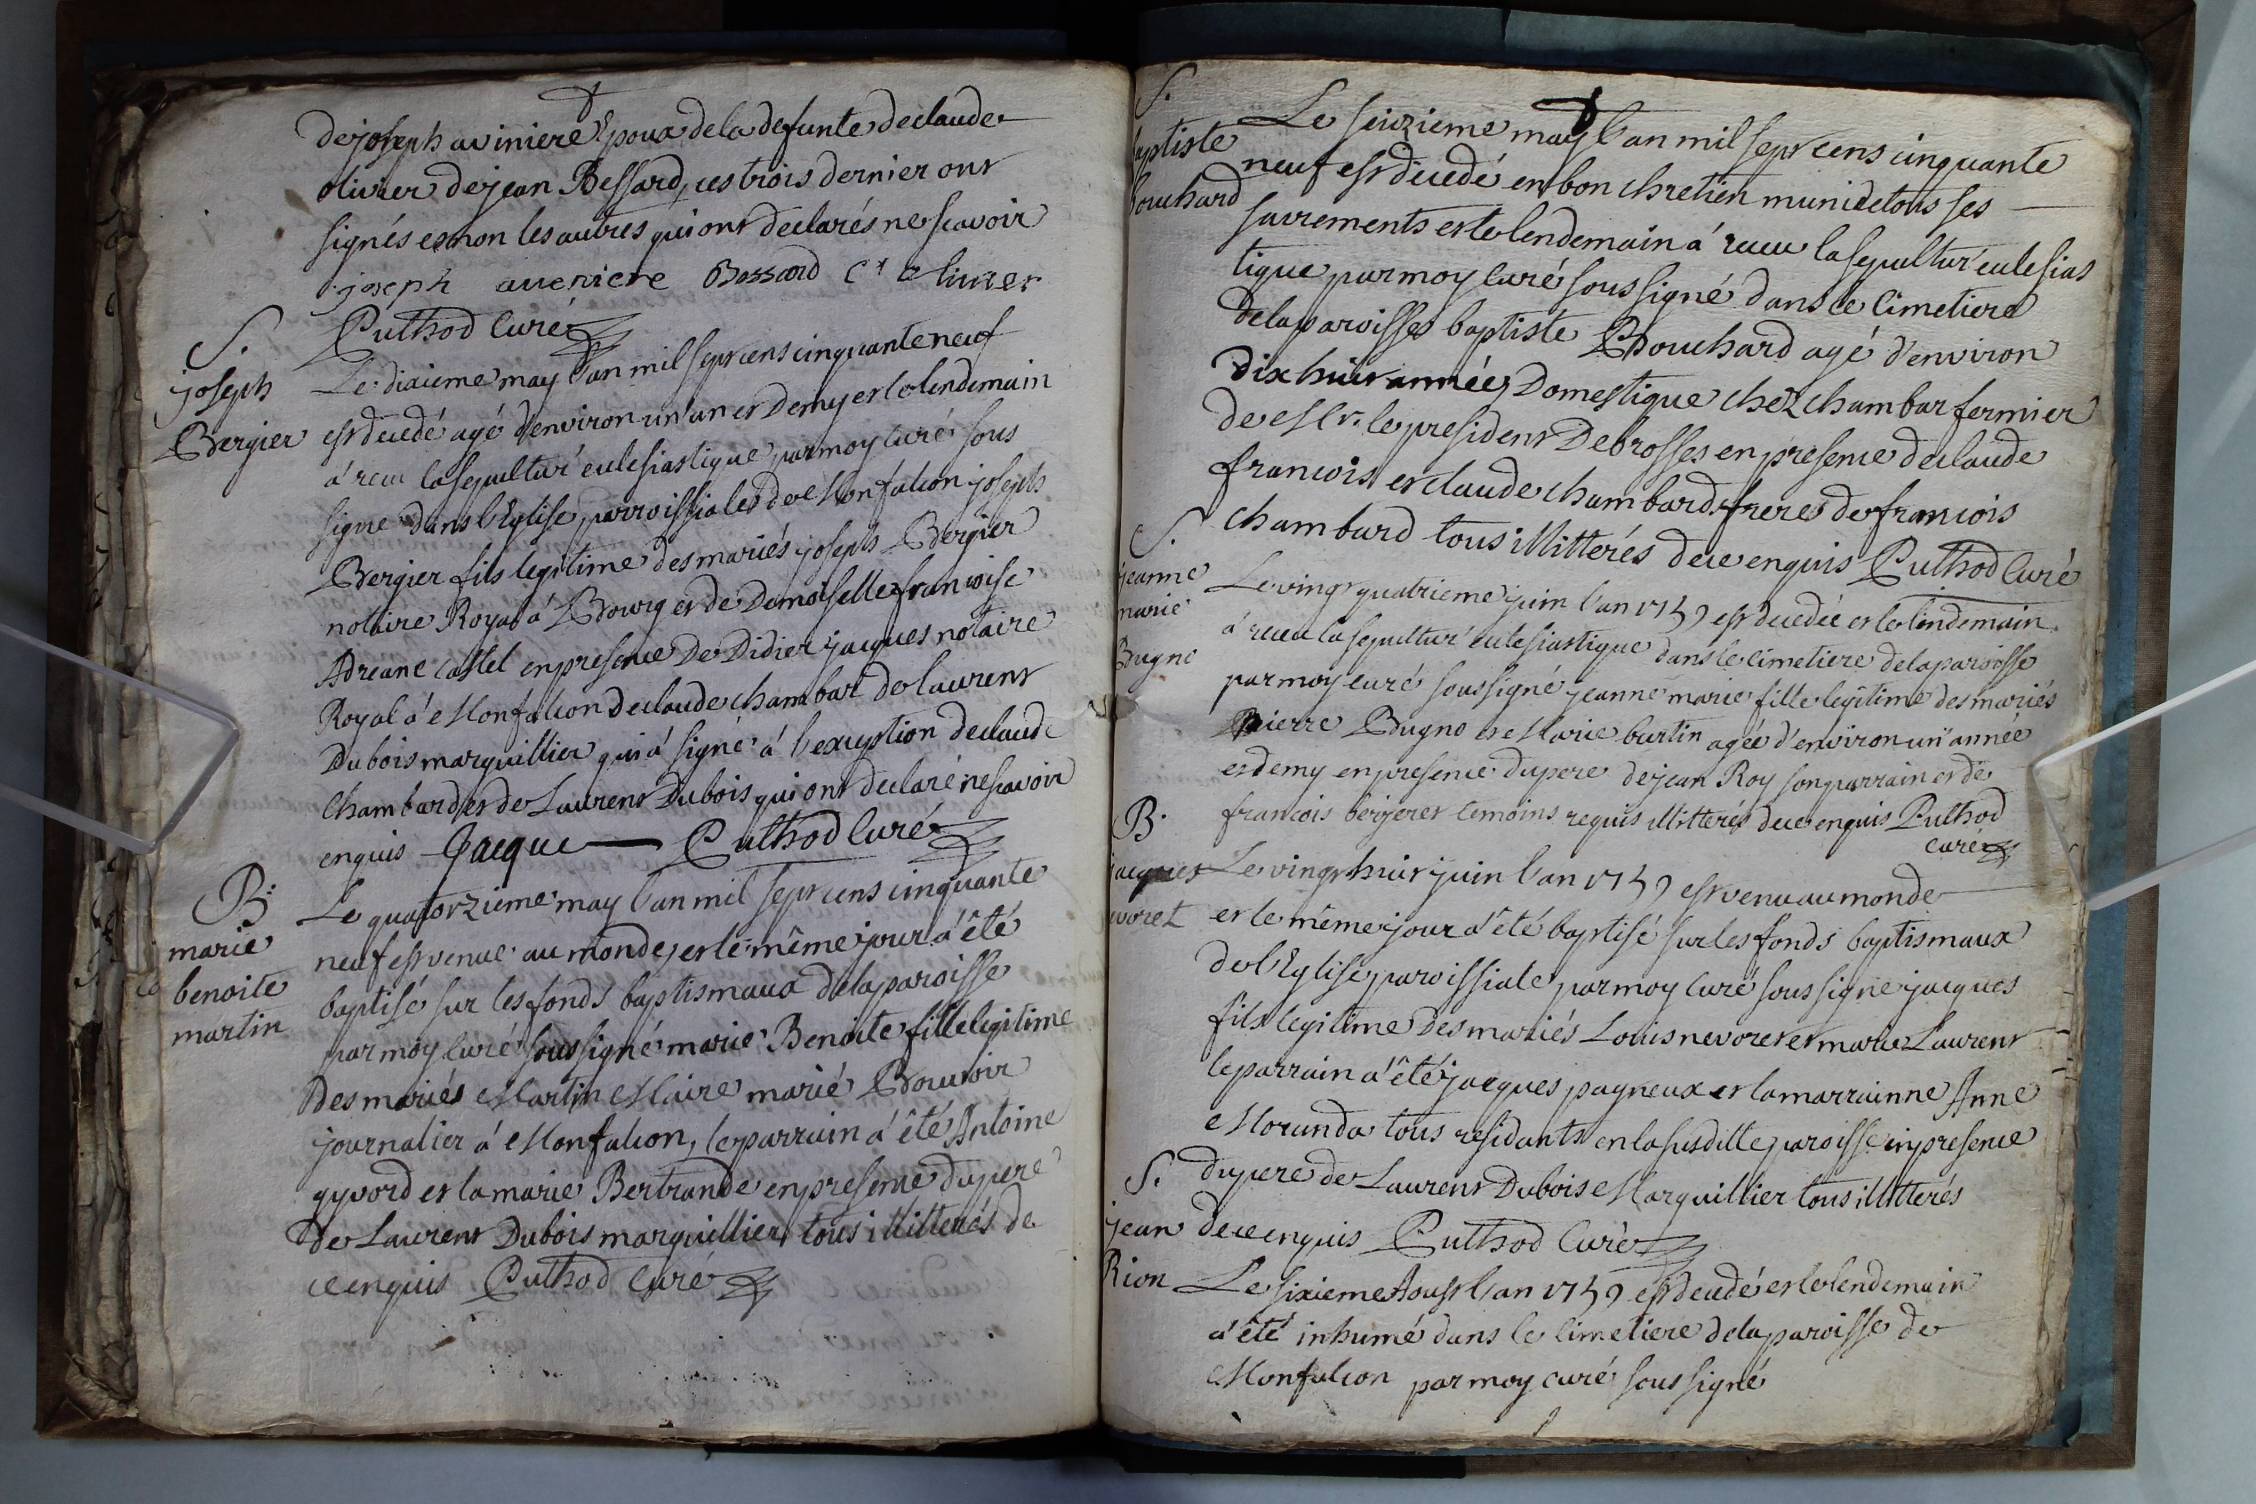 de joseph aviniere Epoux de la defunte de claude
olivier de jean Bessard, ces trois dernier ont
signés et non les autres qui ont declarés ne scavoir
joseph aveniere Bossard Ct olivier
Puthod Curé
S.
joseph
Bergier
Le dixieme may l'an mil sept cens cinquante neuf
est decedé agé d'environ un an et Demy et le lendemain
a' recu la sepultur' eclesiastique par moy curé sous
signe dans l'Eglise parroissiales de Monfalcon joseph
Bergier fils legitime des mariés joseph Bergier
notaire Royal a' Bourg et de Demoiselle francoise
Adreane castel en presence De Didier jacques notaire
Royal a' Monfalcon de claude chambar de laurent
Dubois marguillier qui a' signé a' l'exception de claude
Chambard et de Laurent Dubois qui ont declaré ne scavoir
enquis Jacque Puthod Curé
B.
marie
benoite
martin
Le quatorzieme may l'an mil sept cens cinquante
neuf est venue au monde, et le même jour a' été
baptisé sur les fonds baptismaux de la paroisse
par moy Curé soussigné marie Benoite fille legitime
Des mariés Martin Maire marié Bouvoir
journalier a' Monfalcon, le parrain a' été Antoine
gyvord et la marie Bertrande en presence du pere
de Laurent Dubois marguillier tous illitterés de
ce enquis Puthod Curé
S.
baptiste
bouchard
Le seizieme may l'an mil sept cens cinquante
neuf est decedé en bon chretien muni de tous ses
sacrements et le lendemain a' recu la sepultur' eclesias
tique par moy Curé soussigné dans le Cimetiere
de la paroisses baptiste Bouchard agé d'environ
Dix huit années Domestique chez chambar fermier
de Mr. le president Debrosses en presence de claude
francois et claude chambard freres de francois
chambard tous illitterés de ce enquis Puthod Curé
S.
jeanne
marie
Bugne
Le vingt quatrieme juin l'an 1759 est decedée et le lendemain
a' recu la sepultur' eclesiastique dans le cimetiere de la paroisse
par moy curé soussigné jeanne marie fille legitime des mariés
Pierre Bugne et Marie burtin agée d'environ un' année
et demy en presence du pere de jean Roy son parrain et de
francois berjeret temoins requis illitterés de ce enquis Puthod
Curé
B.
jacques
nevoret
Le vingt huit juin l'an 1759 est venu au monde
et le même jour a' été baptisé sur les fonds baptismaux
de l'Eglise paroissiale par moy Curé soussigné jacques
fils legitime Des mariés Louis nevoret et marie Laurent
le parrain a' été jacques pagneux et la marrainne Anne
Moranda tous residants en la susditte paroisse en presence
du pere de Laurent Dubois Marguillier tous illitterés
de ce enquis Puthod Curé
S.
jean
Rion
Le sixieme Aoust l'an 1759 est decedé et le lendemain
a' été inhumé dans le Cimetiere de la paroisse de
Monfalcon par moy curé soussigné